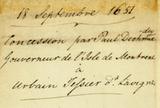 18 Septembre 1651
Concession par Paul Deschom des
Gouverneur de l'Isle de Montreal
à
Urbain Tessier dt Lavigne